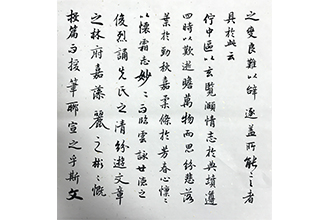 之變良難以辭逐蓋所能言之者
具於此云
佇中區以玄覽頤情志於典墳遵
四時以歎逝瞻萬物而思紛悲落
葉於勁秋嘉柔條於芳春心懍〻
以懷霜志妙〻而臨雲詠世德之
俊烈誦先民之清芬遊文章
之林府嘉藻麗之彬〻慨
投篇而援筆聊宣之乎斯文